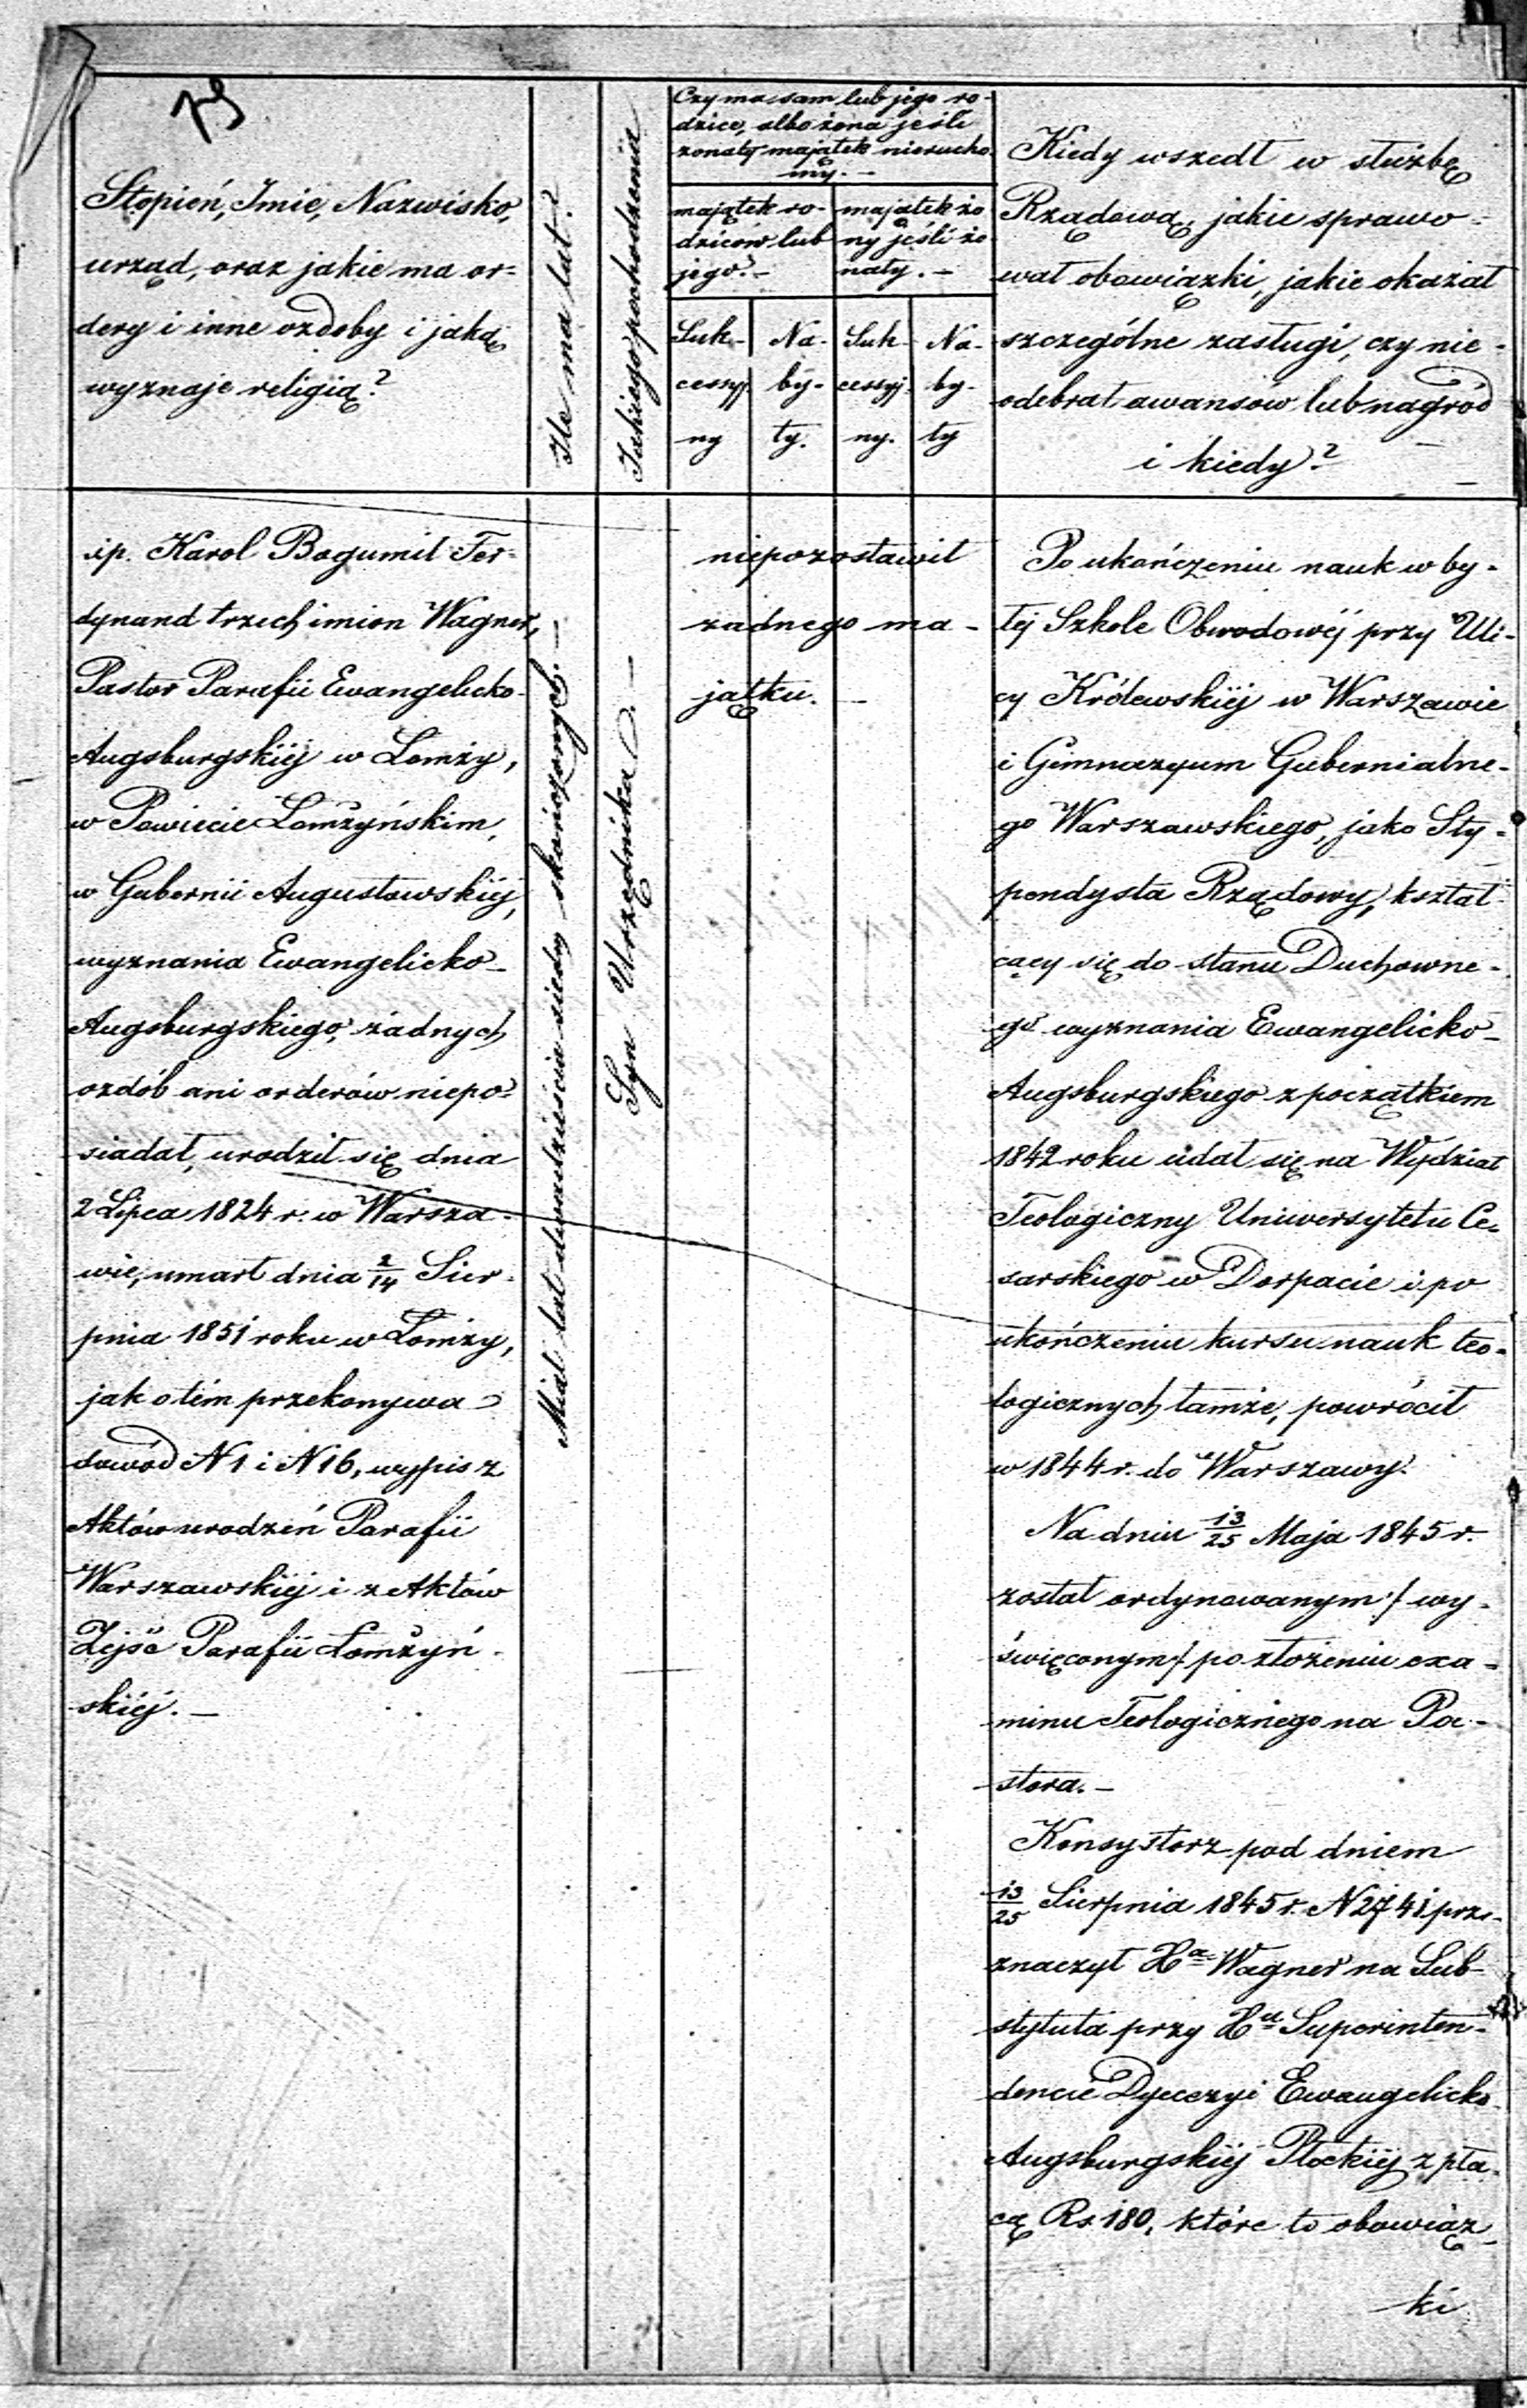 75
Stopień, Imie, Nazwisko,
urząd, oraz jakie ma or-
dery i inne ozdoby i jaką
wyznaje religią?
Ile ma lat?
Jakiego pochodzenia
Czy ma sam lub jego ro-
dzice, albo żona jeśli
żonaty majątek nierucho-
my. —
majątek ro-
dziców lub
jego? —
majątek żo
ny jeśli żo
naty. —
Suk-
cessyj-
ny
Na-
by-
ty.
Suk-
cessyj-
ny.
Na-
by-
ty
Kiedy wszedł w służbę
Rządową, jakie sprawo-
wał obowiązki, jakie okazał
szczególne zasługi, czy nie-
odebrał awansow lub nagród
i kiedy?
ś.p. Karol Bogumił Fer-
dynand trzech imion Wagner,
Pastor Parafii Ewangelicko-
Augsburgskiéj w Łomży,
w Powiecie Łomżyńskim,
w Gubernii Augustowskiéj,
wyznania Ewangelicko-
Augsburgskiego, żadnych
ozdób ani orderów niepo-
siadał, urodził się dnia
2 Lipca 1824 r. w Warsza-
wie, umarł dnia 2/14 Sier-
pnia 1851 roku w Łomży,
jak o tém przekonywa
dowód N 1 i N 16, wypis z
Aktów urodzeń Parafii
Warszawskiéj i z Aktów
Zejść Parafii Łomżyń-
skiéj. —
Miał lat dwadzieścia siedm skończonych. —
Syn Urzędnika. —
niepozostawił
żadnego ma-
jątku. —
Po ukończeniu nauk w by-
łéj Szkole Obwodowéj przy Uli-
cy Królewskiéj w Warszawie
i Gimnazyum Gubernialne-
go Warszawskiego, jako Sty-
pendysta Rządowy, kształ-
cący się do stanu Duchowne-
go wyznania Ewangelicko-
Augsburgskiego z początkiem
1842 roku udał się na Wydział
Teologiczny Uniwersytetu Ce-
sarskiego w Dorpacie i po
ukończeniu kursu nauk teo-
logicznych tamże, powrócił
w 1844 r. do Warszawy.
Na dniu 13/25 Maja 1845 r.
został ordynowanym / wy-
święconym / po złożeniu exa-
minu Teologicznego na Pa-
stora. —
Konsystorz pod dniem
13/25 Sierpnia 1845 r. N 2741 prze-
znaczył Xa Wagner na Sub-
stytuta przy Xu Superinten-
dencie Dyecezyi Ewangelicko-
Augsburgskiéj Płockiéj z pła-
cą Rs. 180, które to obowiąz-
ki